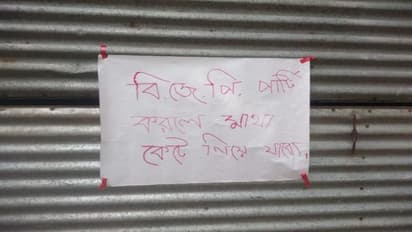 বি.জে.পি. পার্টি
করলে মাথা
কেটে নিয়ে যাবো,